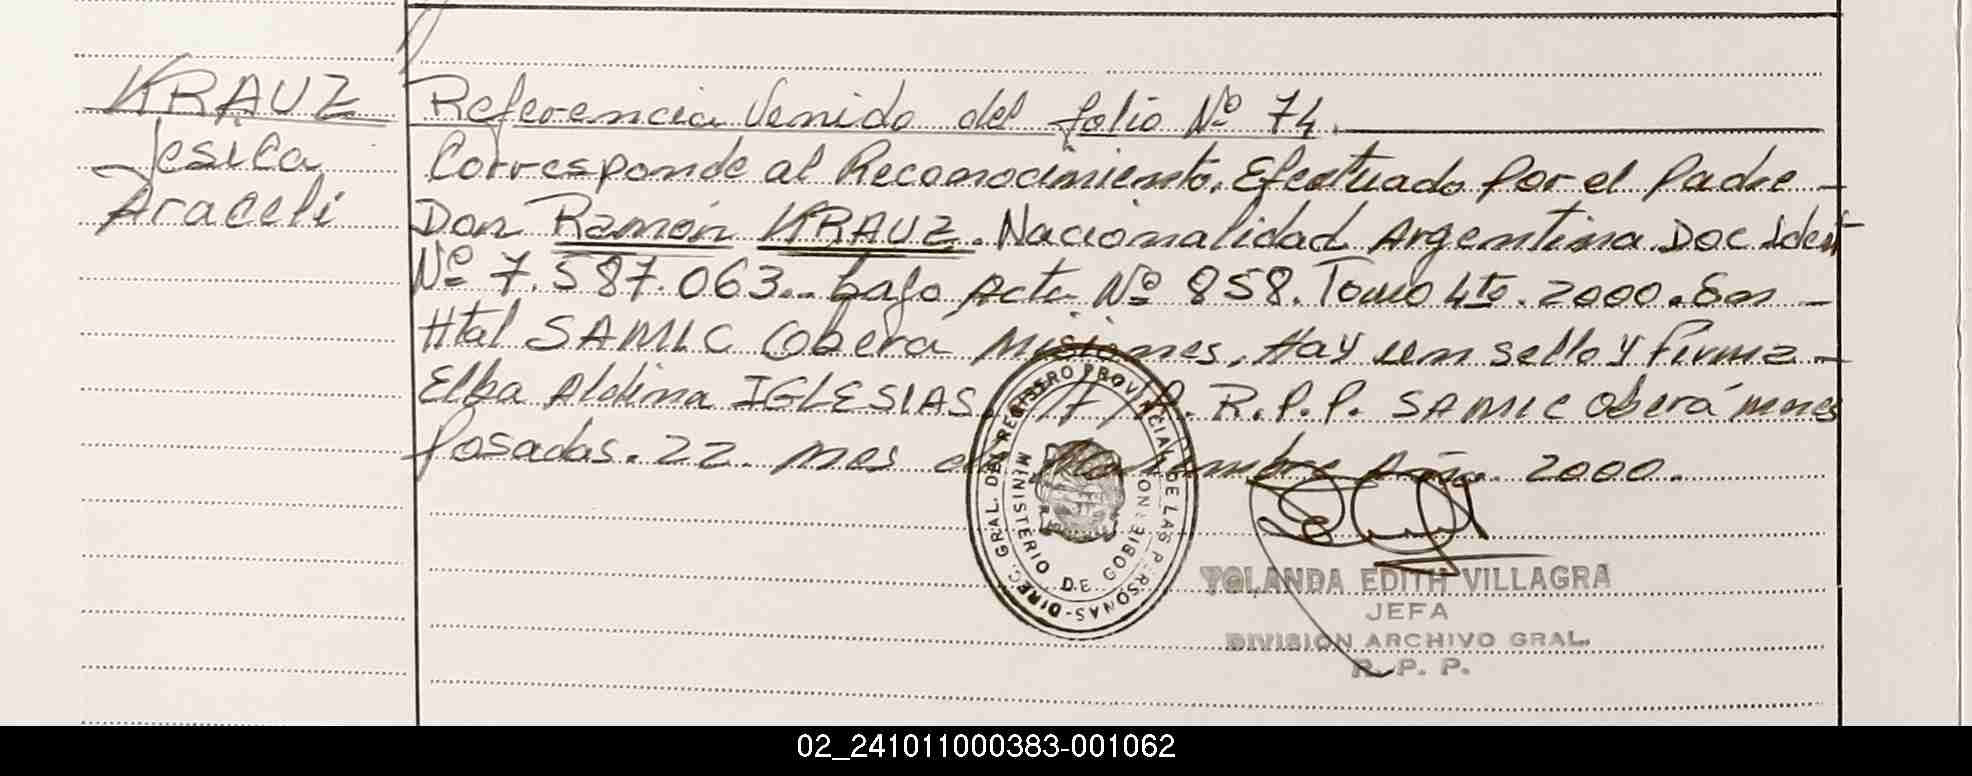 KRAUZ
Jesica
Araceli
Referencia Venido del folio Nº 74.
Corresponde al Reconocimiento. Efectuado por el Padre
Don Ramón KRAUZ. Nacionalidad Argentina Doc Ident
Nº 7.587.063.. bajo Acta Nº 858. Tomo 4to. 2000. En
Htal SAMIC Oberá Misiones. Hay un sello y firma
Elba Aldina IGLESIAS. R.P.P. SAMIC Oberá mnes
Posadas. 22. mes de Noviembre Año 2000.
DIREC. GRAL. DEL REGISTRO PROVINCIAL DE LAS PERSONAS-
MINISTERIO DE GOBIERNO
YOLANDA EDITH VILLAGRA
JEFA
DIVISION ARCHIVO GRAL.
R. P. P.
02_241011000383-001062